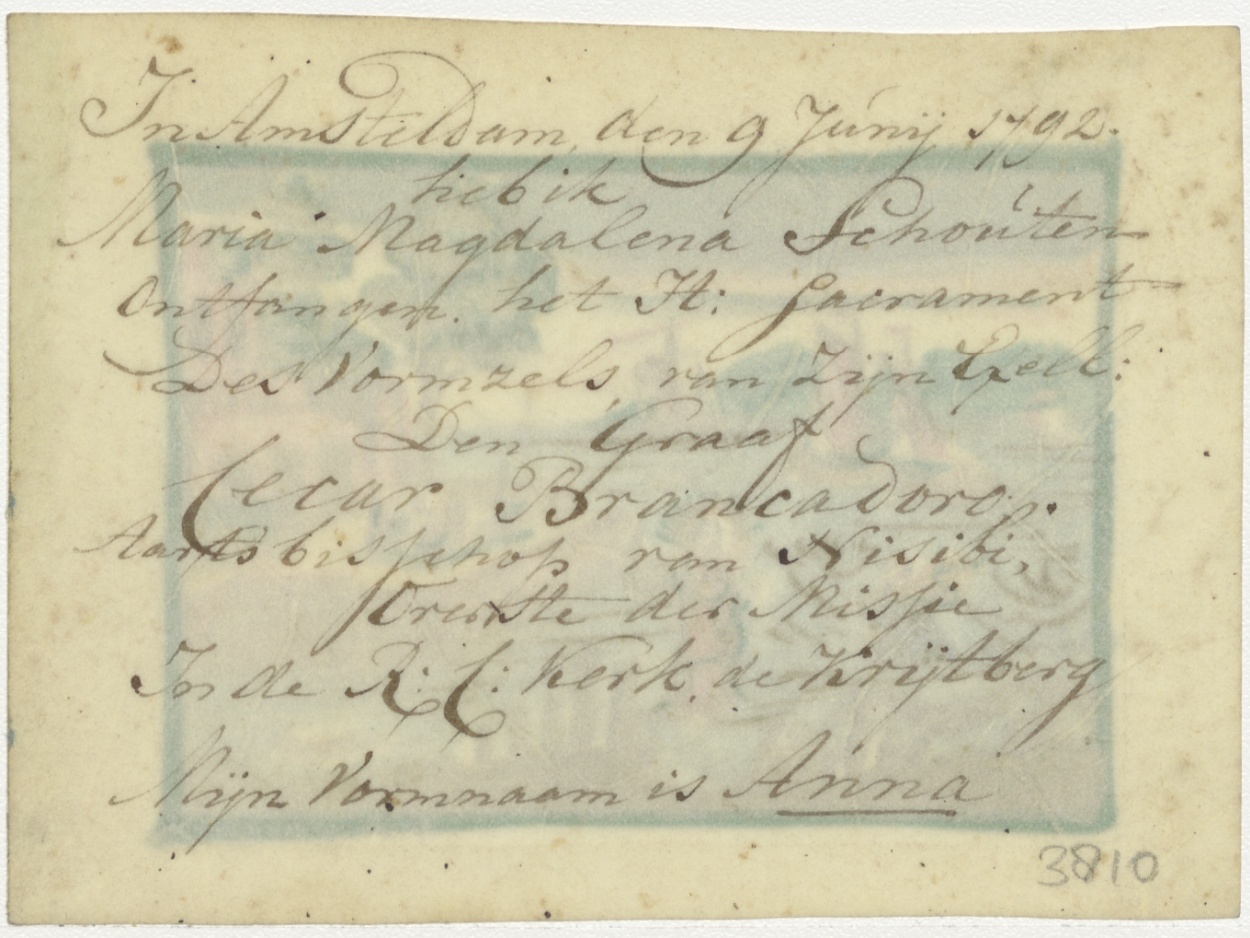 In Amsteldam, den 9 Junij 1792.
heb ik
Maria Magdalena Schouten
Ontfangen het H: Sacrament
Des Vormzels, van Zijn Exell:
Den Graaf
Cecar Brancadoro.
Aartsbisschop van Nisibi,
Overste der Missie
In de R: C: Kerk, de Krijtberg
Mijn Vormnaam is Anna
3810